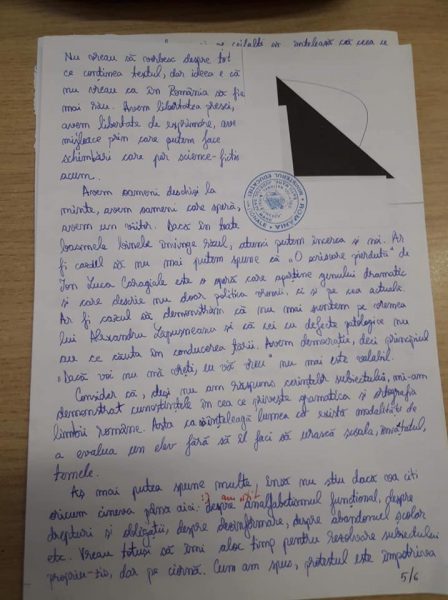 Nu vreau să vorbesc despre tot
ce conținea textul, dar ideea e că
nu vreau ca în România să fie
mai rău. Avem libertatea presei,
avem libertate de exprimare, avem
mijloace prin care putem face
schimbări care par science-fiction
acum.
Avem oameni deschiși la
minte, avem oameni care speră,
avem un viitor. Dacă în toate
basmele binele învinge răul, atunci putem încerca și noi. Ar
fi cazul să nu mai putem spune că „O scrisoare pierdută" de
Ion Luca Caragiale este o operă care aparține genului dramatic
și care descrie nu doar politica vremii, ci și pe cea actuală.
Ar fi cazul să demonstrăm că nu mai suntem pe vremea
lui Alexandru Lăpușneanu și că cei cu defecte patologice nu
au ce căuta în conducerea țării. Avem democrație, deci principiul
"Dacă voi nu mă vreți, eu vă vreu" nu mai este valabil.
Consider că, deși nu am răspuns cerințelor subiectului, mi-am
demonstrat cunoștințele în ceea ce privește gramatica și ortografia
limbii române. Asta ca să înțeleagă lumea că există modalități de
a evalua un elev fără să îl faci să urască școala, învățatul,
temele.
Aș mai putea spune multe, însă nu știu dacă va citi
oricum cineva până aici: despre analfabetismul funcțional, despre
drepturi și obligații, despre dezinformare, despre abandonul școlar
etc. Vreau totuși să îmi aloc timp pentru rezolvarea subiectului
propriu-zis, dar pe ciornă. Cum am spus, protestul este împotriva
5/6